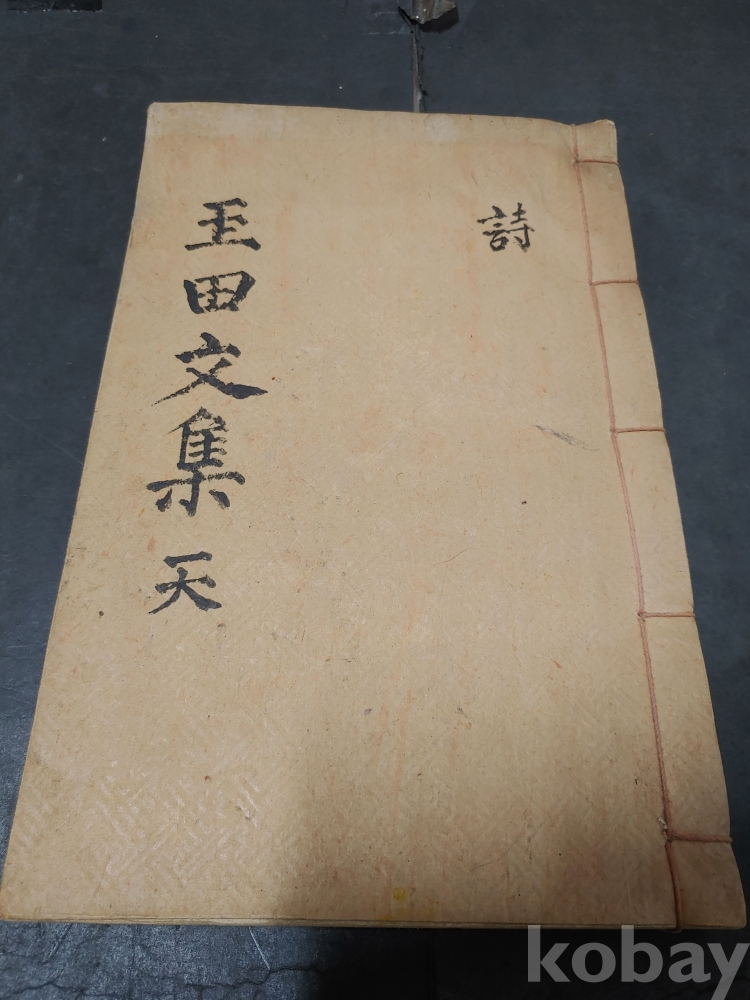 詩
玉田文集 天
kobay